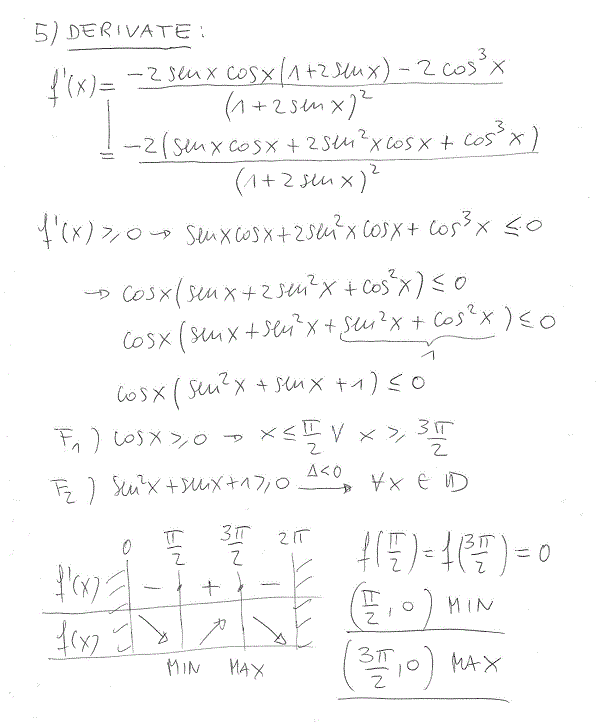 5) DERIVATE:
f'(x) = (-2 sen x cos x (1+2 sen x) - 2 cos³x) / (1+2 sen x)²
= -2 (sen x cos x + 2 sen²x cos x + cos³x) / (1+2 sen x)²
f'(x) ≥ 0 → sen x cos x + 2 sen²x cos x + cos³x ≤ 0
→ cos x (sen x + 2 sen²x + cos²x) ≤ 0
cos x (sen x + sen²x + sen²x + cos²x) ≤ 0
1
cos x (sen²x + sen x + 1) ≤ 0
F₁) cos x ≥ 0 → x ≤ π/2 ∨ x ≥ 3π/2
F₂) sen²x + sen x + 1 ≥ 0 Δ<0 → ∀x ∈ D
0 π/2 3π/2 2π
f'(x) - + -
f(x) ↘ ↗ ↘
MIN MAX
f(π/2) = f(3π/2) = 0
(π/2, 0) MIN
(3π/2, 0) MAX